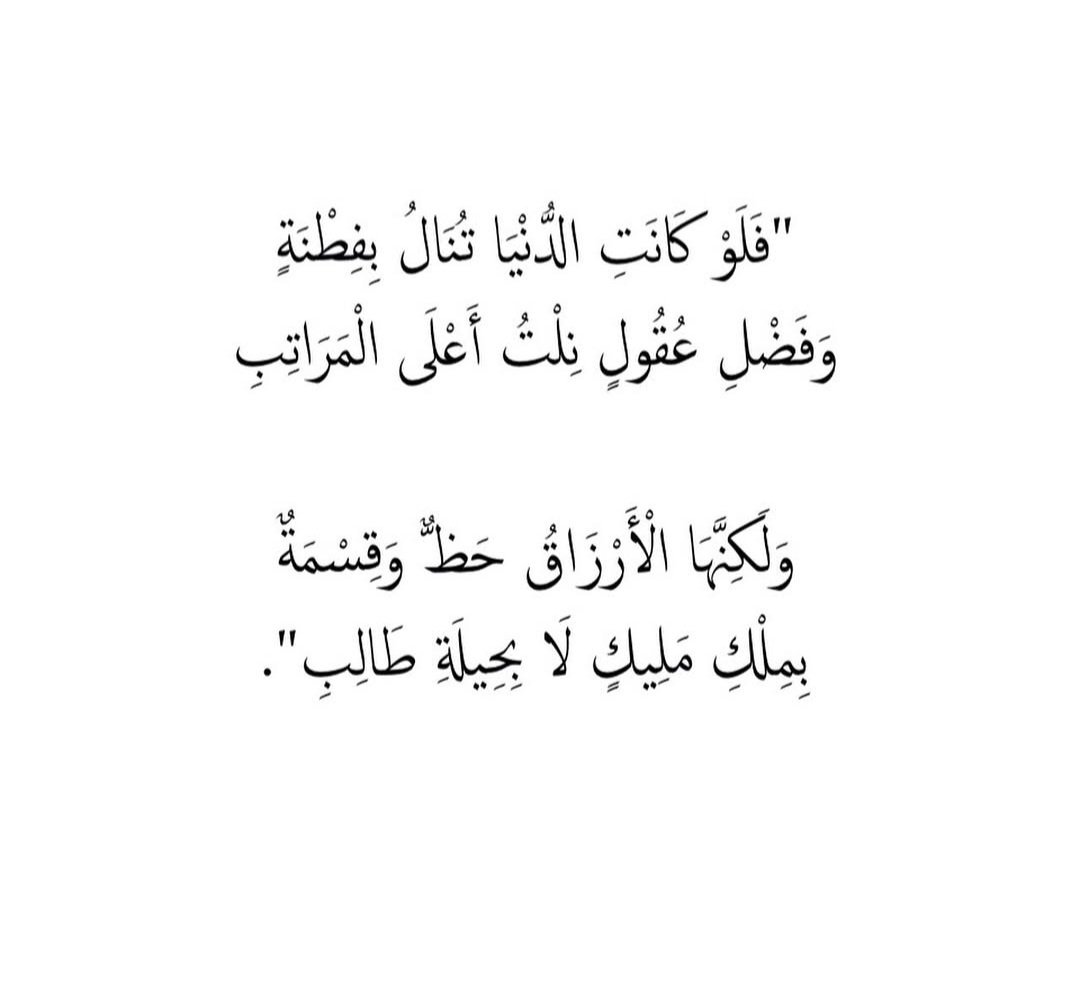 "فَلَوْ كَانَتِ الدُّنْيَا تُنَالُ بِفِطْنَةٍ
وَفَضْلِ عُقُولٍ نِلْتُ أَعْلَى الْمَرَاتِبِ
وَلَكِنَّهَا الْأَرْزَاقُ حَظٌّ وَقِسْمَةٌ
بِمِلْكِ مَلِيكٍ لَا بِحِيلَةِ طَالِبِ".